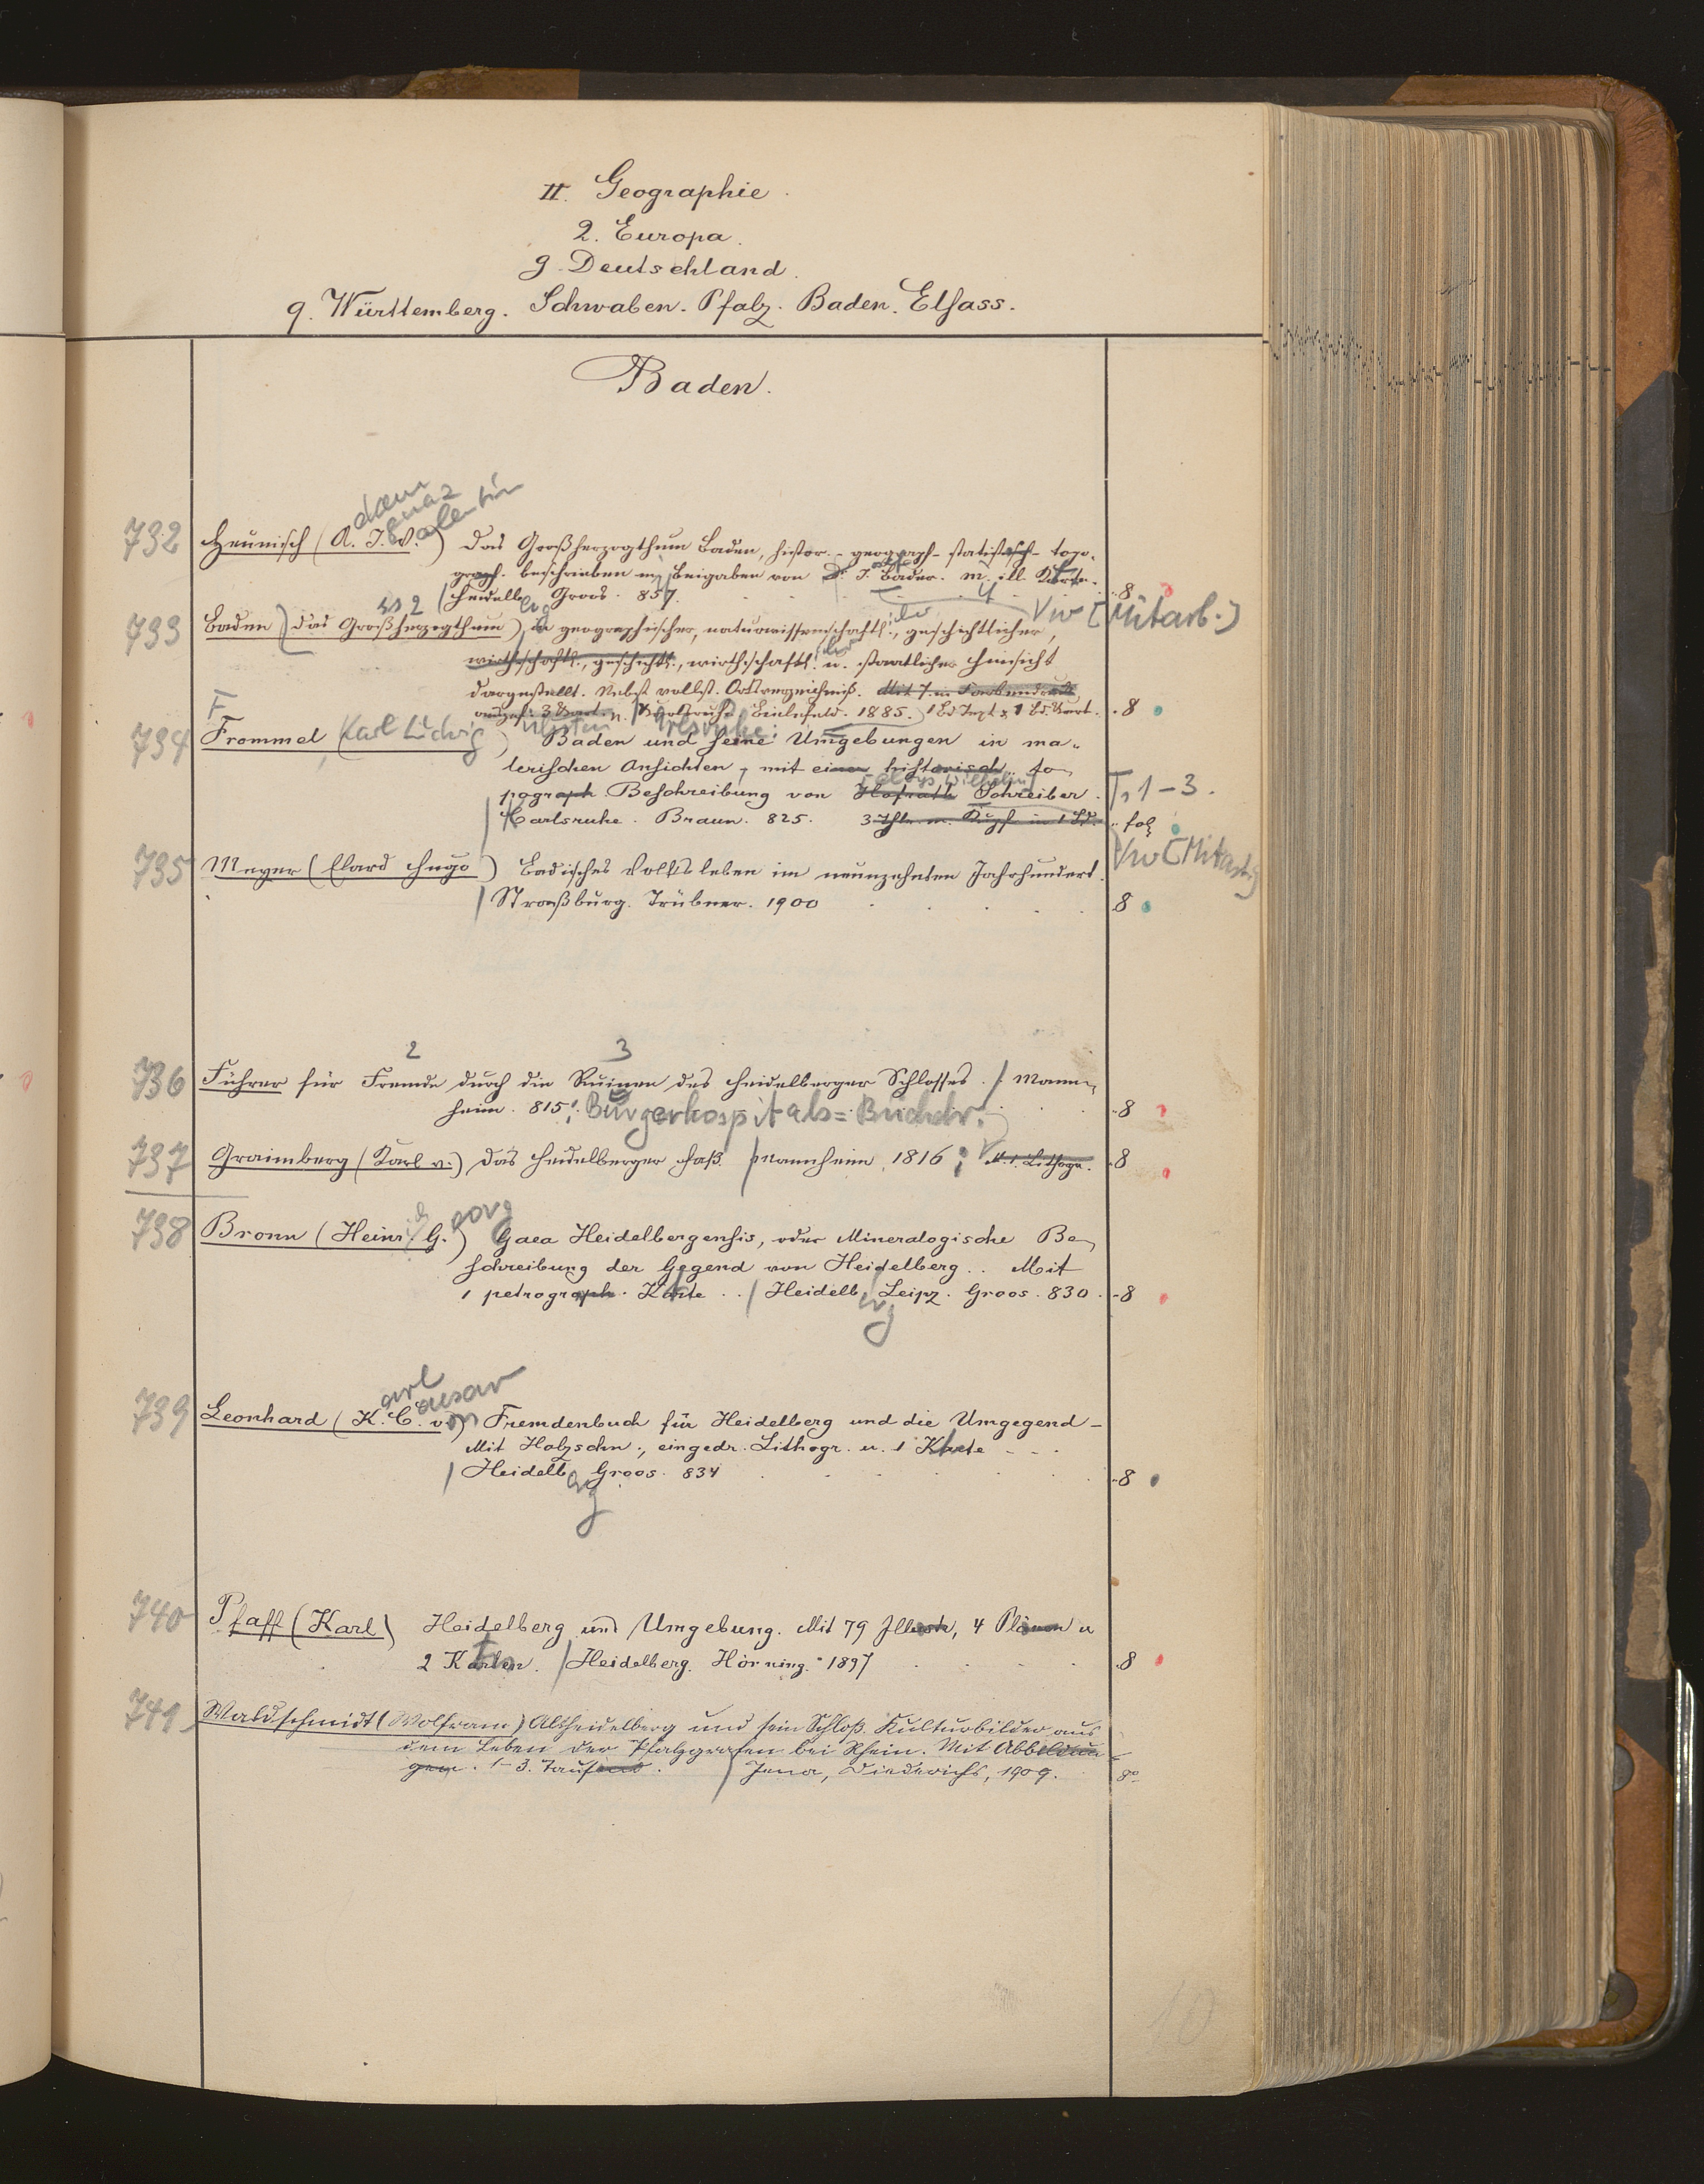 II. Geographie.
2. Europa.
g. Deutschland.
q. Württemberg. Schwaben. Pfalz. Baden. Elsass.
Baden.
dam
gnaz
alentin
732 Heunisch (A. I. V.) Das Großherzogthum Baden, histor.-geograph-statistisch-topo-
graph. beschrieben m Beigaben von Dr. J. Bader. M. ill. Karte.
Heidelb erg Groos. 857. 8
Vw [Mitarb.]
733 Baden (das Großherzogthum) in geographischer, naturwissenschaftl., geschichtlicher,
wirthschaftl., geschichtl., wirthschaftl. u. staatlicher Hinsicht
dargestellt. Nebst vollst. Ortsverzeichniß. Mit 7 in Farbendruck
3 Kart. Karlsruhe. Bielefeld. 1885. 1 Bd Text & 1 Bd. Kart. 8
F
734 Frommel (Karl Ludwig) Baden und seine Umgebungen in ma-
lerischen Ansichten, mit einer historisch. to-
Aloys Wilhelm
pograph Beschreibung von Hofrath Schreiber. T. 1-3.
Carlsruhe. Braun. 825. 3 Thle. m. Kupf. in 1 Bd. fol
Vw [Mitarb.]
735 Meyer (Elard Hugo) Badisches Volksleben im neunzehnten Jahrhundert.
Straßburg. Trübner. 1900 8
2 3
736 Führer für Fremde durch die Ruinen des Heidelberger Schlosses. Mann-
heim. 815. Bürgerhospitals=Buchdr. 8
737 Graimberg (Karl v.) Das Heidelberger Faß. Mannheim, 1816; M. 1. Lithogr. 8
eorg
738 Bronn (Heinr. G.) Gaea Heidelbergensis, oder Mineralogische Be-
schreibung der Gegend von Heidelberg.. Mit
1 petrograph. Karte.. Heidelb. Leipz. Groos. 830. 8
erg
arl
aesar
739 Leonhard (K. C. von) Fremdenbuch für Heidelberg und die Umgegend-
Mit Holzschn., eingedr. Lithogr. u. 1 Karte
Heidelb Groos. 834 8
erg
740 Pfaff (Karl) Heidelberg und Umgebung. Mit 79 Illustr, 4 Plänen u
2 Karten. Heidelberg. Hörning. 1897 8
741 Waldschmidt (Wolfram) Altheidelberg und sein Schloß. Kulturbilder aus
dem Leben der Pfalzgrafen bei Rhein. Mit Abbildun-
gen. 1-3. Tausend. Jena, Diederichs, 1909. 8°
10